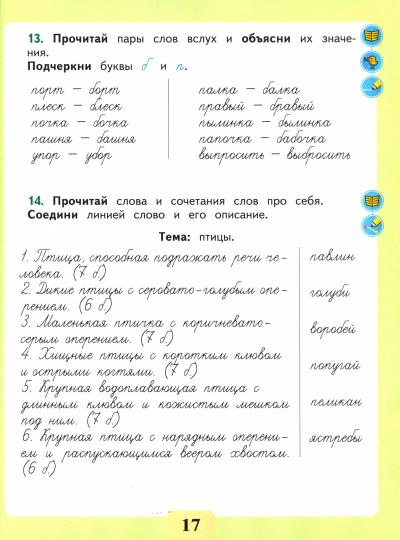 13. Прочитай пары слов вслух и объясни их значе-
ния.
Подчеркни буквы б и п.
порт – борт
плеск – блеск
почка – бочка
пашня – башня
упор – убор
палка – балка
правый – бравый
пылинка – былинка
папочка – бабочка
выпросить – выбросить
14. Прочитай слова и сочетания слов про себя.
Соедини линией слово и его описание.
Тема: птицы.
1. Птица, способная подражать речи че-
ловека. (7 б.)
2. Дикие птицы с серовато-голубым опе-
рением. (6 б.)
3. Маленькая птичка с коричневато-
серым оперением. (7 б.)
4. Хищные птицы с коротким клювом
и острыми когтями. (7 б.)
5. Крупная водоплавающая птица с
длинным клювом и кожистым мешком
под ним. (7 б.)
6. Крупная птица с нарядным оперени-
ем и распускающимся веером хвостом.
(6 б.)
павлин
голуби
воробей
попугай
пеликан
ястребы
17